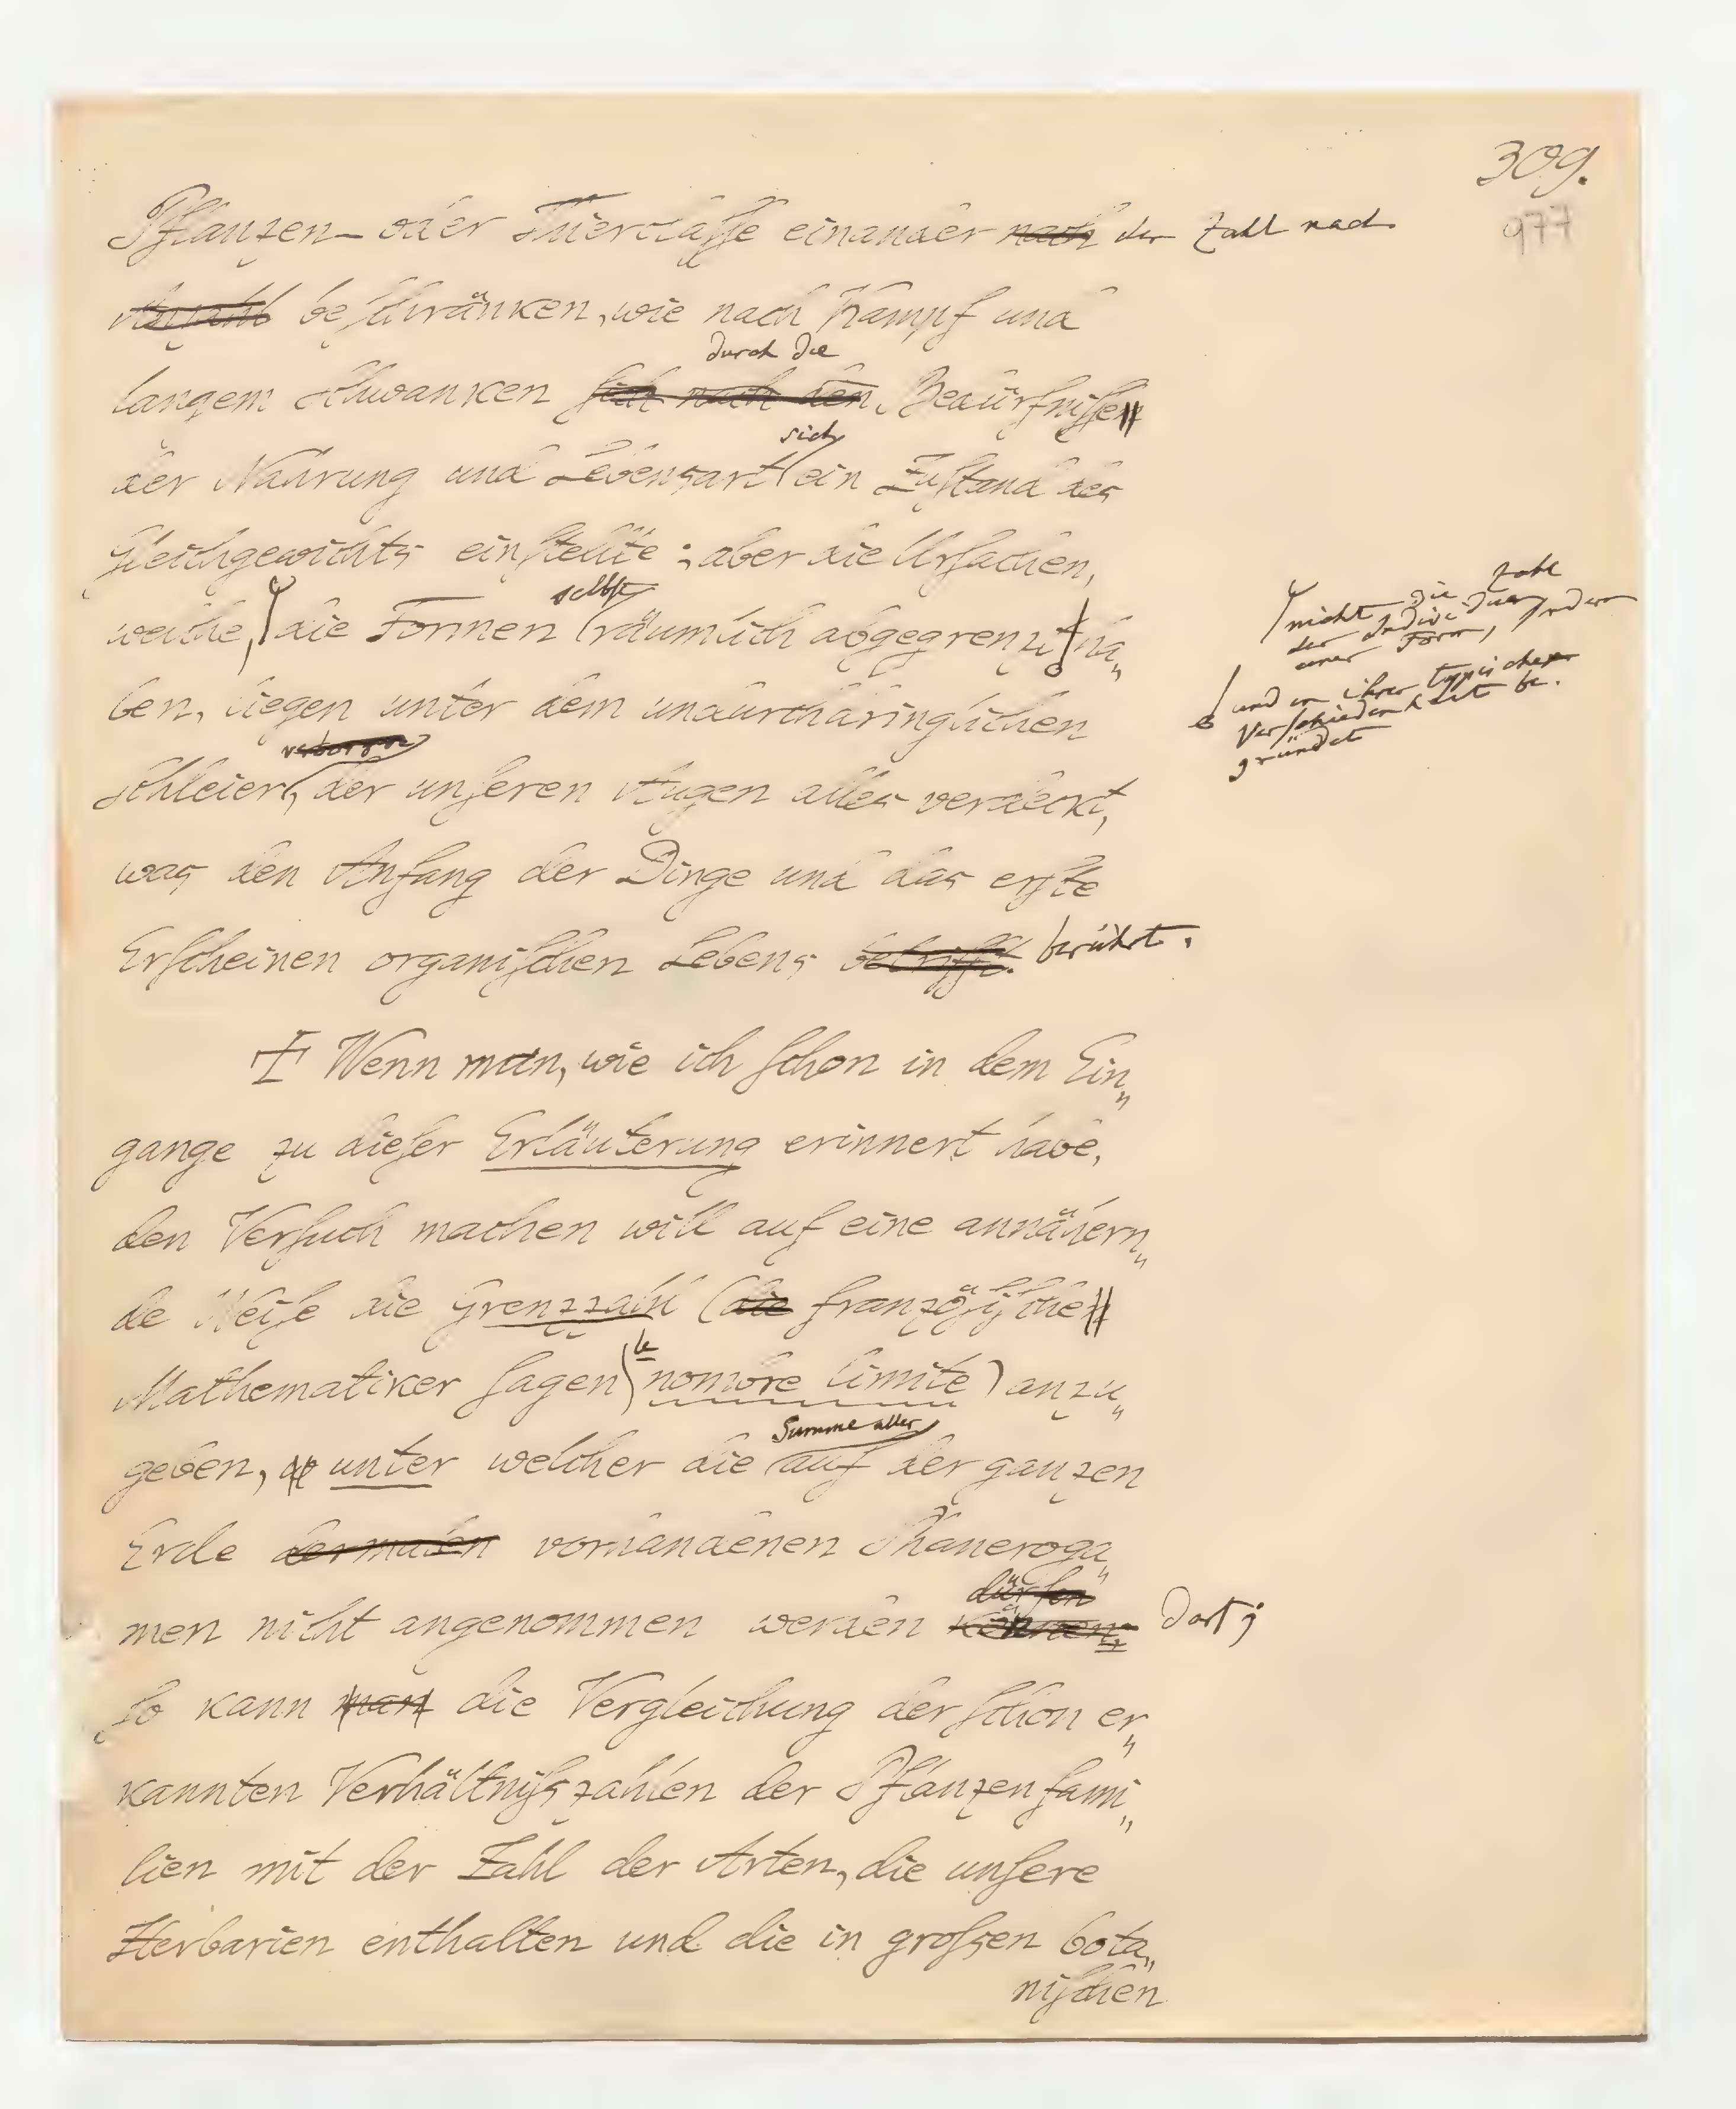 309.
977
Pflanzen- oder Thierclasse einander nach der Zahl nach
Anzahl beschränken, wie nach Kampf und
durch die
langem Schwanken sich nach den Bedürfnissen
sich
der Nahrung und Lebensart ein Zustand des
Gleichgewichts einstellte; aber die Ursachen,
selbst
welche, die Formen räumlich abgegrenzt ha„
nicht die Zahl
der Individuen
einer Form, sondern
und in ihrer typischen
Verschiedenheit be-
gründet
ben, liegen unter dem undurchdringlichen
verborgen
Schleier, der unseren Augen alles verdeckt,
was den Anfang der Dinge und das erste
Erscheinen organischen Lebens betrifft. berührt.
Wenn man, wie ich schon in dem Ein„
gange zu dieser Erläuterung erinnert habe,
den Versuch machen will auf eine annähern„
de Weise die Grenzzahl (die französische
le
Mathematiker sagen nombre limite) anzu„
Summe aller
geben, unter welcher die auf der ganzen
Erde dermalen vorhandenen Phaneroga„
dürfen
men nicht angenommen werden können: darf;
so kann man die Vergleichung der schon er„
kannten Verhältnißzahlen der Pflanzenfami„
lien mit der Zahl der Arten, die unsere
Herbarien enthalten und die in großen bota„
nischen